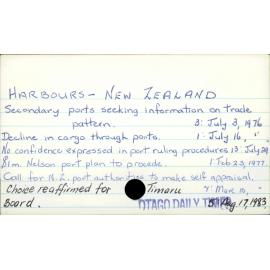 HARBOURS - NEW ZEALAND
Secondary ports seeking information on trade
pattern. 3: July 3, 1976
Decline in cargo through ports. 1: July 16, "
No confidence expressed in port ruling procedures 13: July 29
$1m. Nelson port plan to procede. 1: Feb 23, 1977.
Call for N.Z. port authorities to make self appraisal.
Choice reaffirmed for Timaru Mar 10, "
Board. OTAGO DAILY TIMES Aug 17, 1983